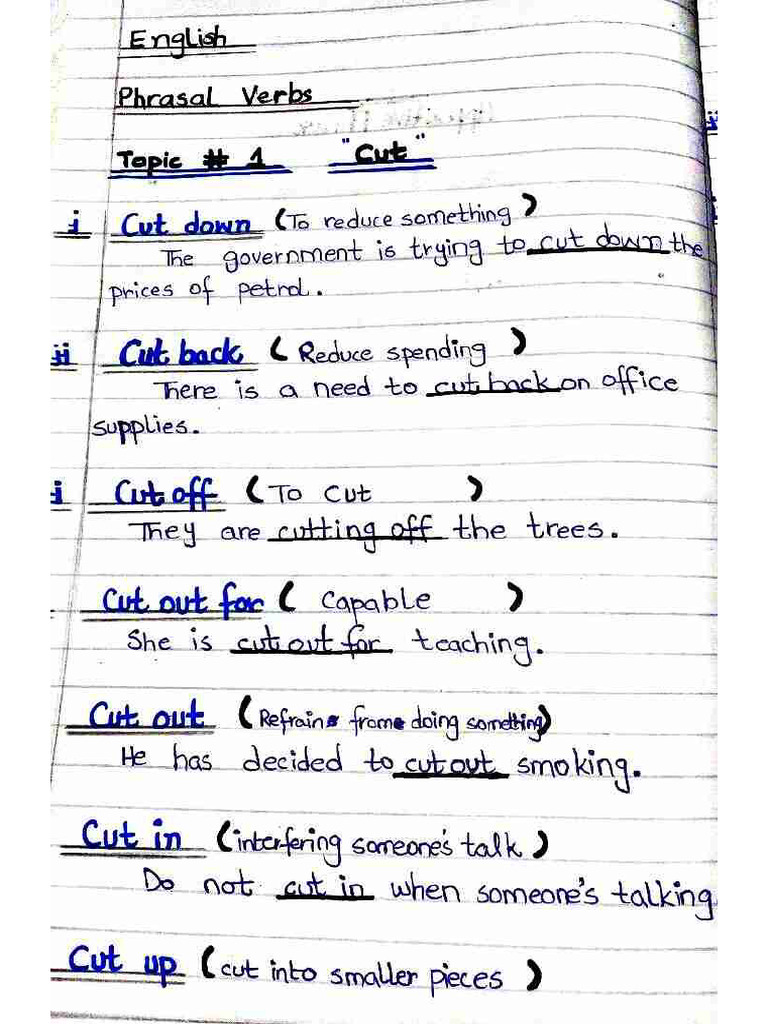 English
Phrasal Verbs
Topic # 1 "Cut"
i Cut down (To reduce something)
The government is trying to cut down the
prices of petrol.
ii Cut back ( Reduce spending )
There is a need to cut back on office
supplies.
i Cut off (To cut )
They are cutting off the trees.
Cut out for ( Capable )
She is cut out for teaching.
Cut out (Refrain from doing something)
He has decided to cut out smoking.
Cut in (interfering someone's talk)
Do not cut in when someone's talking
Cut up (cut into smaller pieces )